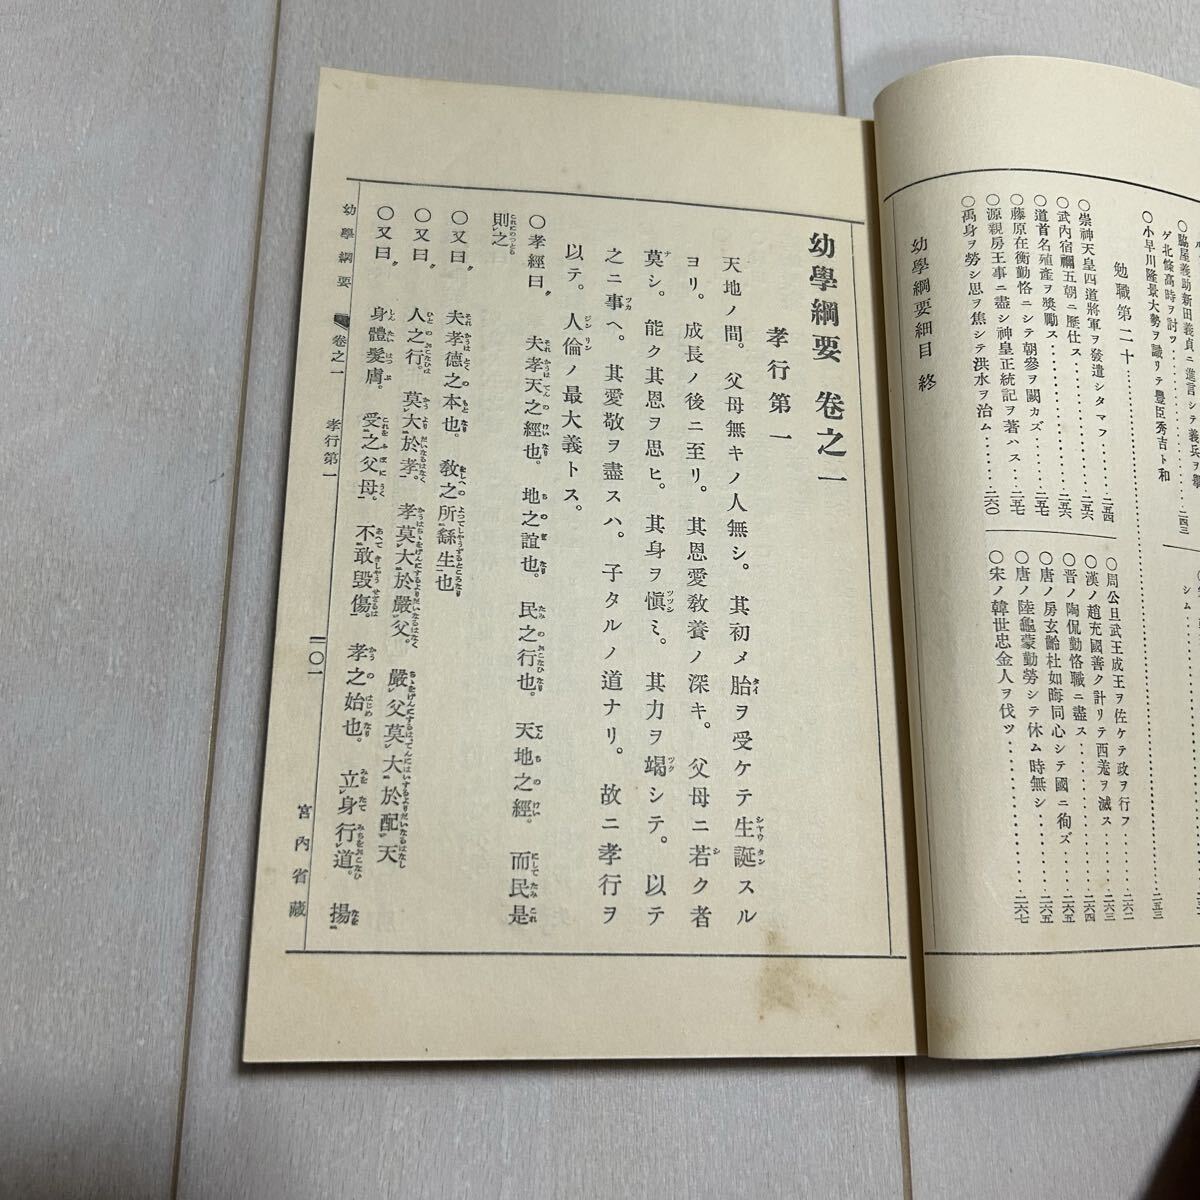 ゲ北條高時ヲ討ツ
〇脇屋義助新田義貞ニ進言シテ義兵ヲ擧
二四三
〇小早川隆景大勢ヲ識リテ豐臣秀吉ト和
シム
二五三
勉職第二十
〇崇神天皇四道將軍ヲ發遣シタマフ……二五四
〇武內宿禰五朝ニ歷仕ス……二五六
〇道首名殖產ヲ奬勵ス……二五七
〇藤原在衡勤恪ニシテ朝參ヲ闕カズ……二五七
〇源親房王事ニ盡シ神皇正統記ヲ著ハス……二五七
〇禹身ヲ勞シ思ヲ焦シテ洪水ヲ治ム……二六〇
〇周公旦武王成王ヲ佐ケテ政ヲ行フ……二六二
〇漢ノ趙充國善ク計リテ西羌ヲ滅ス……二六三
〇晉ノ陶侃勤恪職ニ盡ス……二六四
〇唐ノ房玄齡杜如晦同心シテ國ニ徇ズ……二六五
〇唐ノ陸龜蒙勤勞シテ休ム時無シ……二六五
〇宋ノ韓世忠金人ヲ伐ツ……二六七
幼學綱要細目 終
幼學綱要 卷之一
孝行第一
天地ノ間。父母無キノ人無シ。其初メ胎ヲ受ケテ生誕スル
ヨリ。成長ノ後ニ至リ。其恩愛敎養ノ深キ。父母ニ若ク者
莫シ。能ク其恩ヲ思ヒ。其身ヲ愼ミ。其力ヲ竭シテ。以テ
之ニ事ヘ。其愛敬ヲ盡スハ。子タルノ道ナリ。故ニ孝行ヲ
以テ。人倫ノ最大義トス。
〇孝經曰。夫孝天之經也。地之誼也。民之行也。天地之經。而民是
則之
〇又曰。夫孝德之本也。敎之所繇生也
〇又曰。人之行。莫大於孝。孝莫大於嚴父。嚴父莫大於配天
〇又曰。身體髮膚。受之父母。不敢毀傷。孝之始也。立身行道。揚
幼學綱要 卷之一 孝行第一 一〇一 宮內省藏